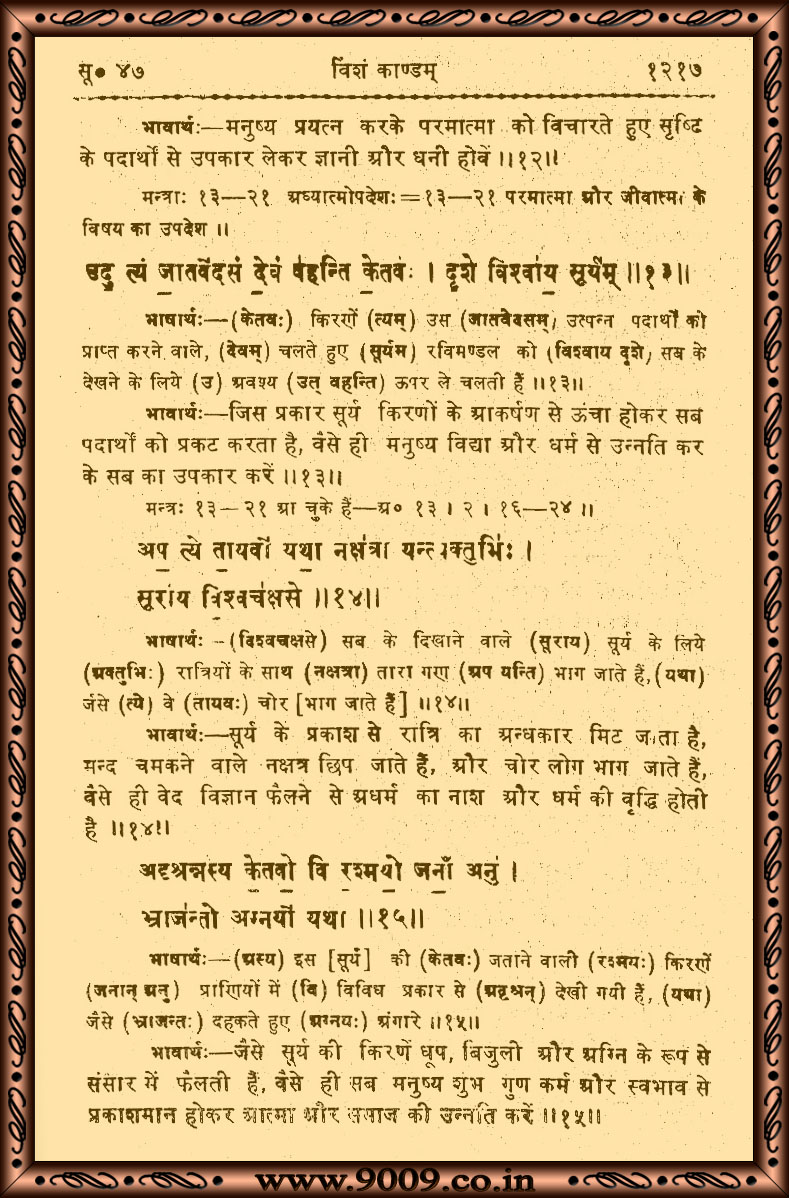 सू० ४७ विंशं काण्डम् १२१७
भावार्थः—मनुष्य प्रयत्न करके परमात्मा को विचारते हुए सृष्टि
के पदार्थों से उपकार लेकर ज्ञानी और धनी होवें ॥१२॥
मन्त्राः १३—२१ अध्यात्मोपदेशः=१३—२१ परमात्मा और जीवात्मा के
विषय का उपदेश ॥
उदु॒ त्यं जा॒तवे॑दसं दे॒वं व॑हन्ति के॒तवः॑ । दृ॒शे विश्वा॑य॒ सूर्य॑म् ॥१३॥
भाषार्थः—(केतवः) किरणें (त्यम्) उस (जातवेदसम्) उत्पन्न पदार्थों को
प्राप्त करने वाले, (देवम्) चलते हुए (सूर्यम) रविमण्डल को (विश्वाय दृशे) सब के
देखने के लिये (उ) अवश्य (उत् वहन्ति) ऊपर ले चलती हैं ॥१३॥
भावार्थः—जिस प्रकार सूर्य किरणों के आकर्षण से ऊंचा होकर सब
पदार्थों को प्रकट करता है, वैसे ही मनुष्य विद्या और धर्म से उन्नति कर
के सब का उपकार करें ॥१३॥
मन्त्रः १३—२१ आ चुके हैं—अ० १३ । २ । १६—२४ ॥
अप॒ त्ये ता॒यवो॑ यथा॒ नक्ष॑त्रा यन्त्य॒क्तुभिः॑ ।
सूरा॑य वि॒श्वच॑क्षसे ॥१४॥
भाषार्थः—(विश्वचक्षसे) सब के दिखाने वाले (सूराय) सूर्य के लिये
(अक्तुभिः) रात्रियों के साथ (नक्षत्रा) तारा गण (अप यन्ति) भाग जाते हैं,(यथा)
जैसे (त्ये) वे (तायवः) चोर [भाग जाते हैं] ॥१४॥
भावार्थः—सूर्य के प्रकाश से रात्रि का अन्धकार मिट जाता है,
मन्द चमकने वाले नक्षत्र छिप जाते हैं, और चोर लोग भाग जाते हैं,
वैसे ही वेद विज्ञान फैलने से अधर्म का नाश और धर्म की वृद्धि होती
है ॥१४॥
अदृ॑श्रन्नस्य के॒तवो॒ वि र॒श्मयो॒ जनाँ॒ अनु॑ ।
भ्राज॑न्तो अ॒ग्नयो॑ यथा ॥१५॥
भाषार्थः—(अस्य) इस [सूर्य] की (केतवः) जताने वाली (रश्मयः) किरणें
(जनान् अनु) प्राणियों में (वि) विविध प्रकार से (अदृश्रन्) देखी गयी हैं, (यथा)
जैसे (भ्राजन्तः) दहकते हुए (अग्नयः) अंगारे ॥१५॥
भावार्थः—जैसे सूर्य की किरणें धूप, बिजुली और अग्नि के रूप से
संसार में फैलती हैं, वैसे ही सब मनुष्य शुभ गुण कर्म और स्वभाव से
प्रकाशमान होकर आत्मा और समाज की उन्नति करें ॥१५॥
www.9009.co.in